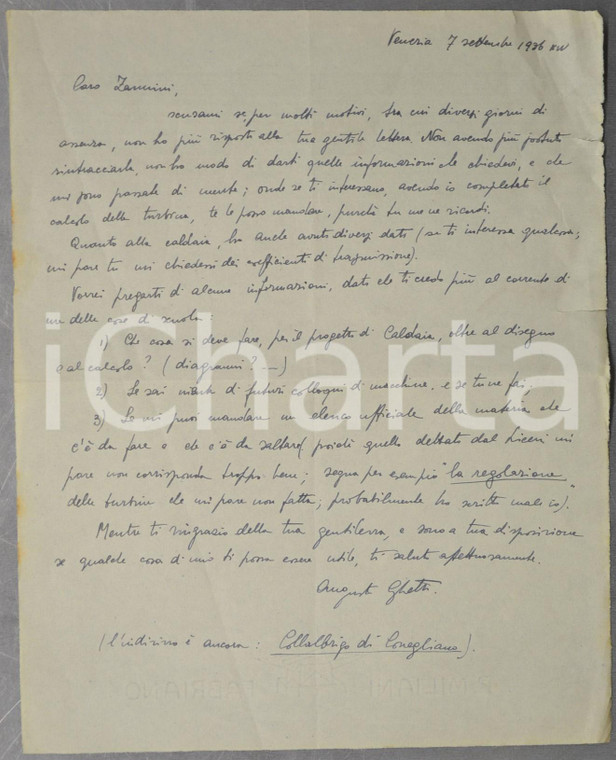 Venezia 7 settembre 1936 XIV
Caro Zannini,
scusami se, per molti motivi, tra cui diversi giorni di
assenza, non ho più risposto alla tua gentile lettera. Non avendo più potuto
rintracciarla, non ho modo di darti quelle informazioni che chiedevi, e che
mi sono passate di mente; onde se ti interessano, avendo io completato il
calcolo della turbina, te le posso mandare, purché tu me ne ricordi.
Quanto alla caldaia, ho anche avuto diversi dati (se ti interessa qualcosa;
mi pare tu mi chiedessi dei coefficienti di trasmissione).
Vorrei pregarti di alcune informazioni, dato che ti credo più al corrente di
me delle cose di scuola:
1) Che cosa si deve fare, per il progetto di Caldaia, oltre al disegno
e al calcolo? (diagrammi? ....)
2) Se sai niente di futuri colloqui di macchine, e se tu ne fai.
3) Se mi puoi mandare un elenco ufficiale della materia che
c'è da fare e che c'è da saltare (poiché quello dettato dal Liceni mi
pare non corrisponda troppo bene; segna per esempio "la regolazione
delle turbine" che mi pare non fatta; probabilmente ho scritto male io).
Mentre ti ringrazio della tua gentilezza, e sono a tua disposizione
se qualche cosa di mio ti possa essere utile, ti saluto affettuosamente.
Augusto Ghetti.
(l'indirizzo è ancora: Collalbrigo di Conegliano).
P. MILIANI FABRIANO
iCharta